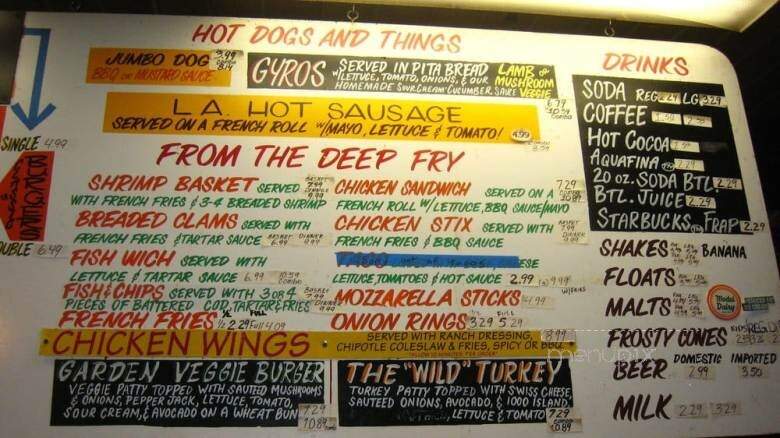 HOT DOGS AND THINGS
JUMBO DOG
BBQ OR MUSTARD SAUCE
GYROS SERVED IN PITA BREAD
W/LETTUCE, TOMATO, ONIONS, & OUR
HOMEMADE SOUR CREAM CUCUMBER SAUCE
LAMB OR
MUSHROOM
VEGGIE
L.A. HOT SAUSAGE
SERVED ON A FRENCH ROLL W/MAYO, LETTUCE & TOMATO! 4.99
SINGLE 4.99
DOUBLE 6.49
FROM THE DEEP FRY
SHRIMP BASKET SERVED
WITH FRENCH FRIES & 3-4 BREADED SHRIMP
BREADED CLAMS SERVED WITH
FRENCH FRIES & TARTAR SAUCE BASKET 6.99 DINNER 9.99
FISH WICH SERVED WITH
LETTUCE & TARTAR SAUCE 6.99 10.59 COMBO
FISH & CHIPS SERVED WITH 3 OR 4
PIECES OF BATTERED COD, TARTAR & FRIES
FRENCH FRIES 1/2 2.29 FULL 4.09
CHICKEN SANDWICH SERVED ON A 7.29
FRENCH ROLL W/LETTUCE, BBQ SAUCE/MAYO 10.89
CHICKEN STIX SERVED WITH
FRENCH FRIES & BBQ SAUCE
LETTUCE, TOMATOES & HOT SAUCE 2.99
MOZZARELLA STICKS
ONION RINGS 3.29 5.29
CHICKEN WINGS SERVED WITH RANCH DRESSING, 8.99
CHIPOTLE COLESLAW & FRIES, SPICY OR BBQ
GARDEN VEGGIE BURGER
VEGGIE PATTY TOPPED WITH SAUTEED MUSHROOMS
& ONIONS, PEPPER JACK, LETTUCE, TOMATO,
SOUR CREAM, & AVOCADO ON A WHEAT BUN 7.29
10.89
THE "WILD" TURKEY
TURKEY PATTY TOPPED WITH SWISS CHEESE,
SAUTEED ONIONS, AVOCADO, & 1000 ISLAND,
LETTUCE & TOMATO 7.29
10.89
DRINKS
SODA REG 2.29 LG 3.29
COFFEE
HOT COCOA
AQUAFINA 2.29
20 OZ. SODA BTL 2.29
BTL. JUICE 2.29
STARBUCKS FRAP 2.29
SHAKES BANANA
FLOATS
MALTS
Model Dairy
FROSTY CONES KIDS REG LG
BEER DOMESTIC 2.99 IMPORTED 3.50
MILK 2.29 3.29
menupix